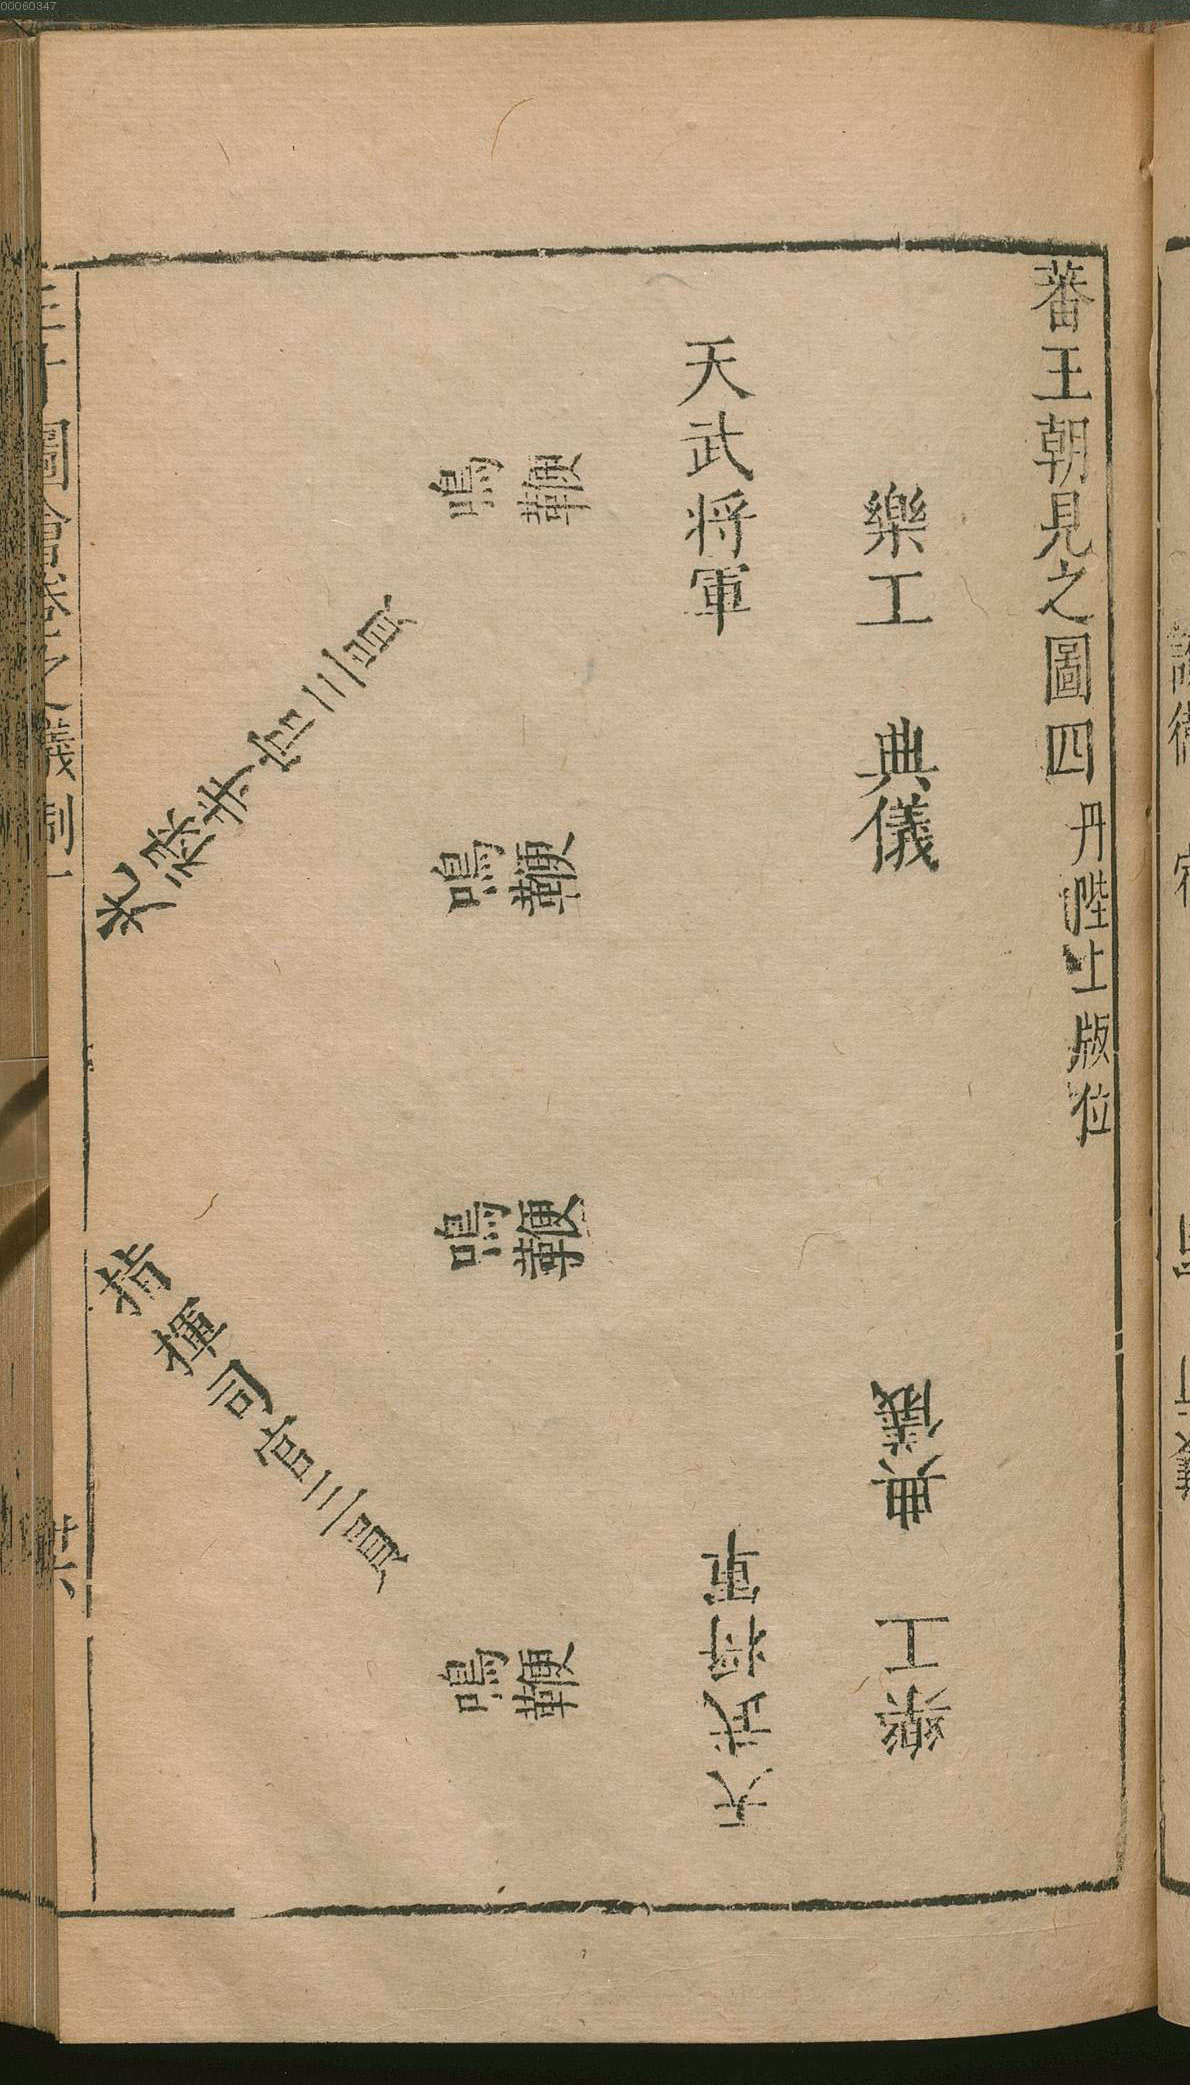 00060347
蕃王朝見之圖四 丹陛上版位
樂工 典儀
典儀 樂工
天武将軍
天武将軍
鳴鞭
鳴鞭
鳴鞭
鳴鞭
光祿寺官三員
指揮司官三員
圖會 儀制一
廿六